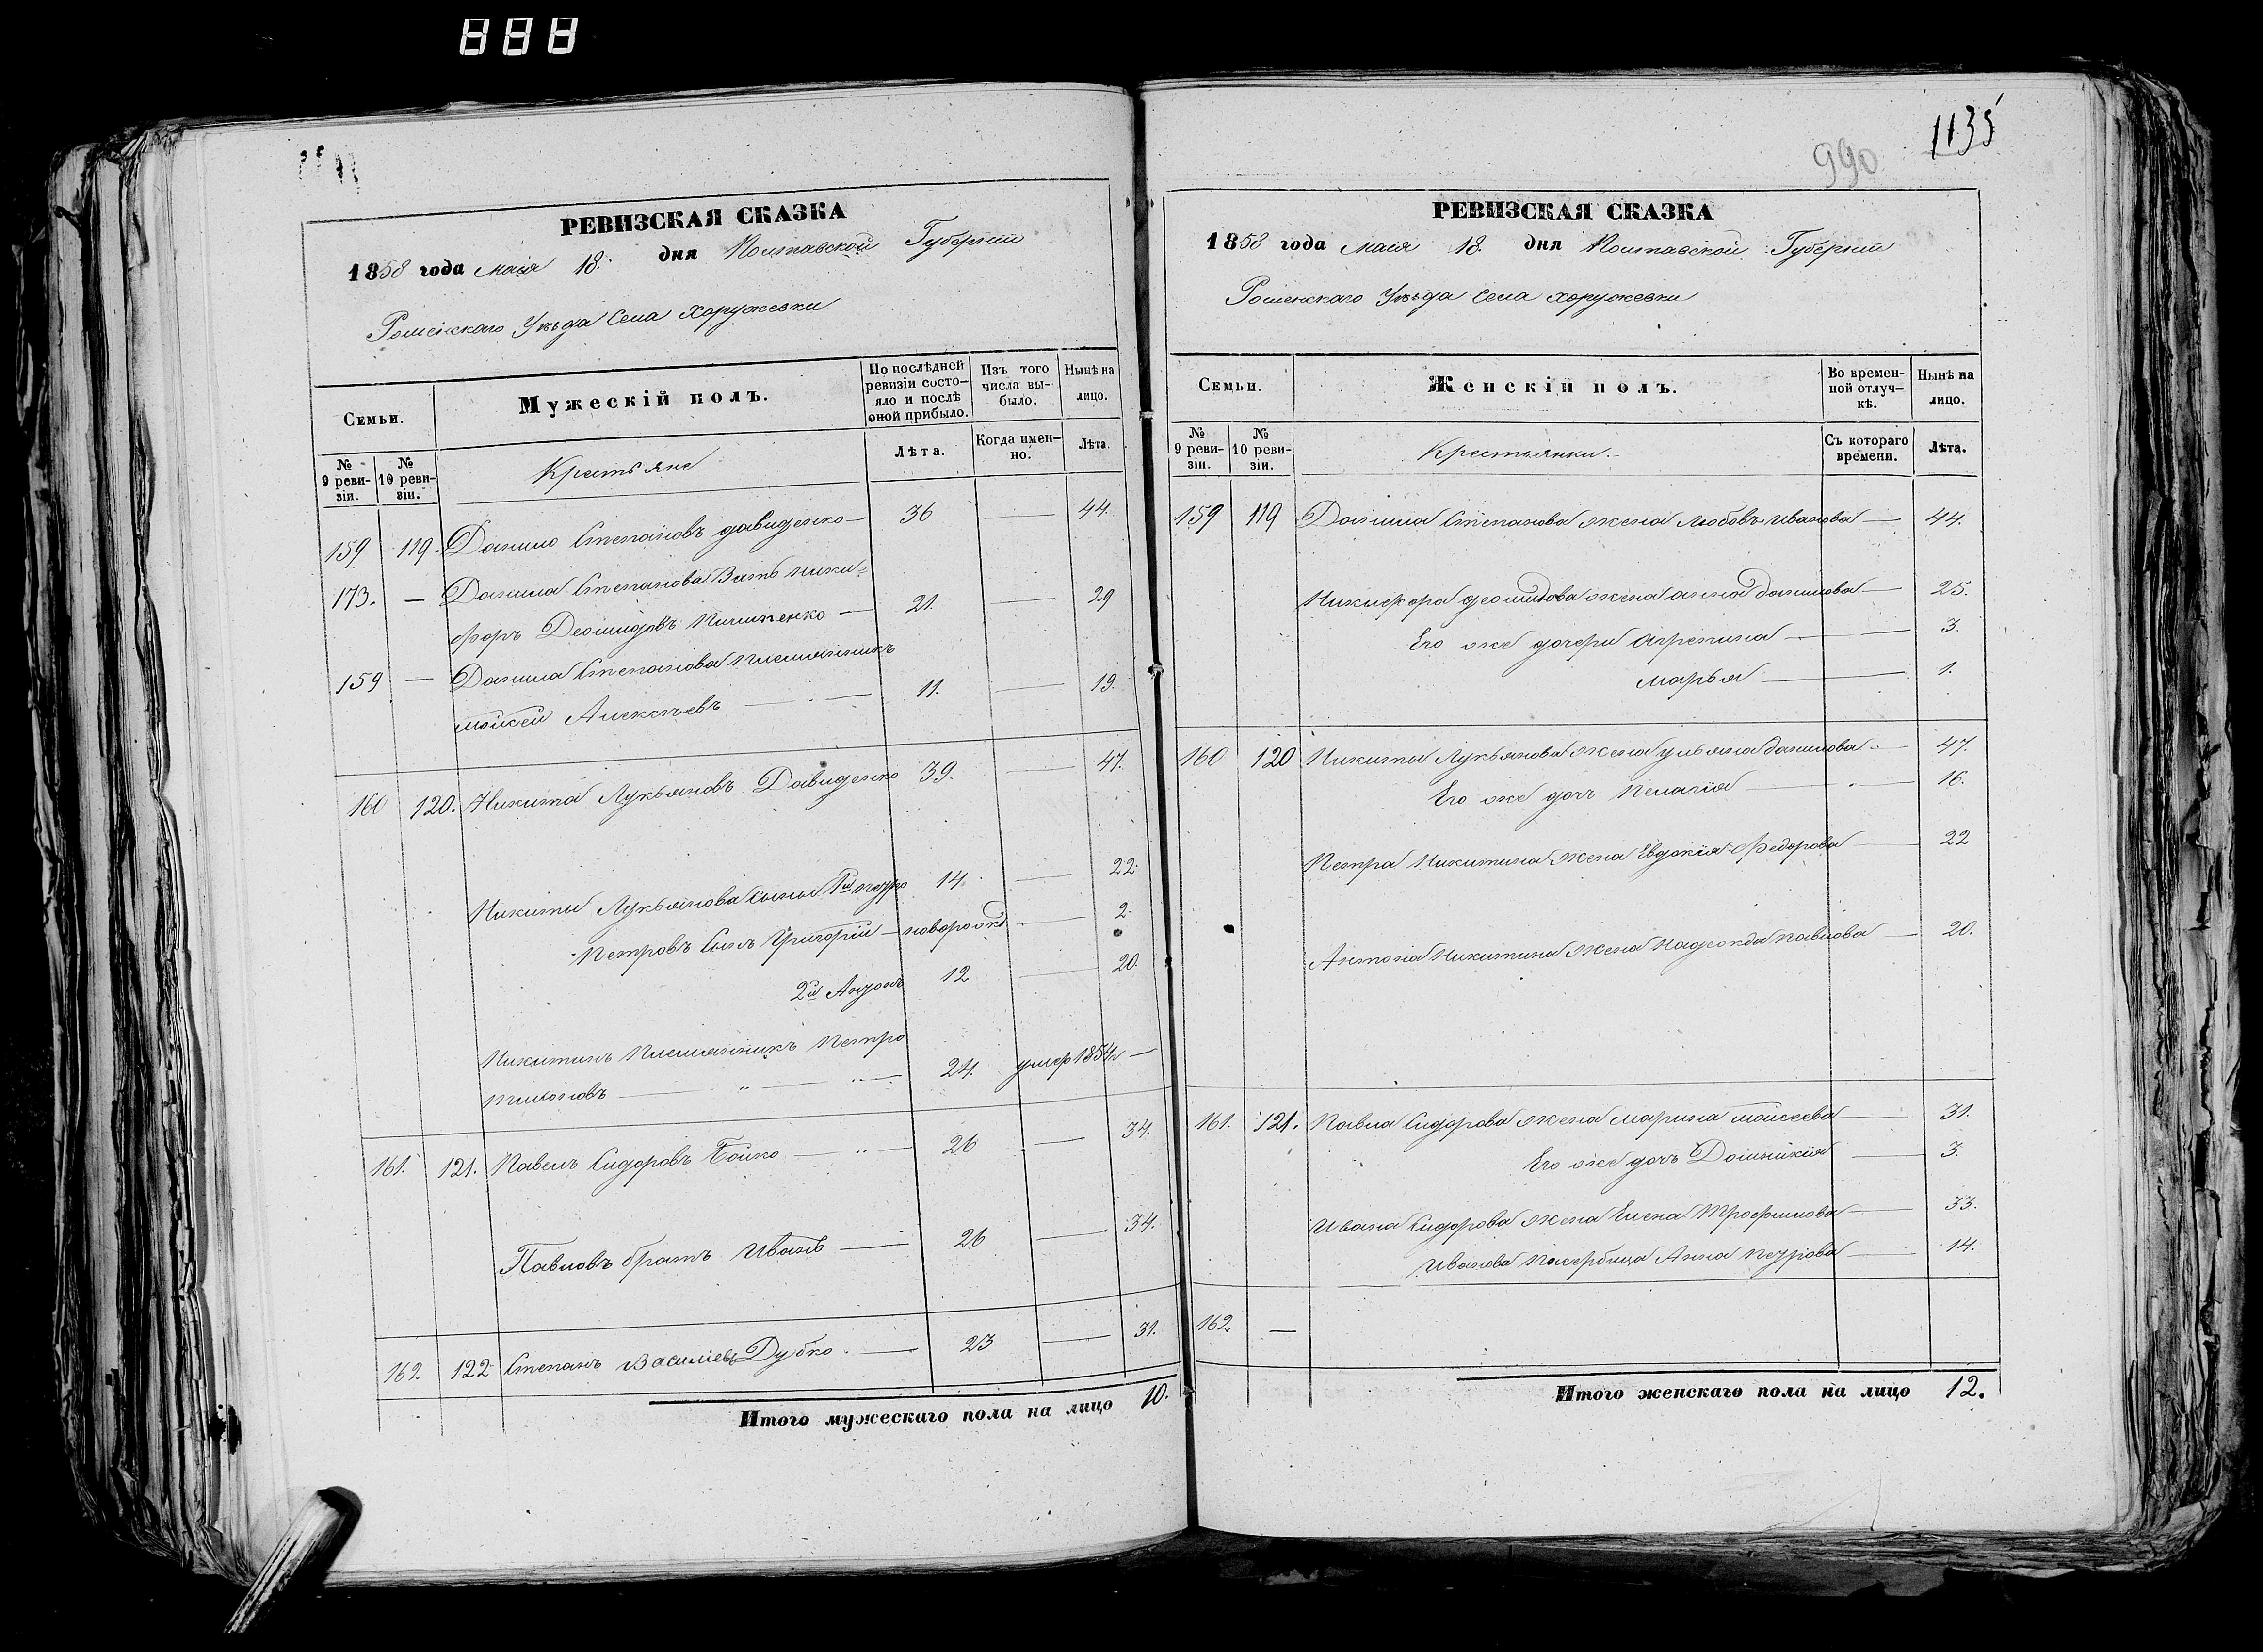 888
РЕВИЗСКАЯ СКАЗКА
1858 года маія 18. дня Полтавской Губерніи
Роменскаго Уѣзда Села Хоружевки
Семьи.
Мужескій полъ.
По послѣдней ревизіи состо-яло и послѣ оной прибыло.
Изъ того числа вы-было.
Нынѣ на лицо.
№ 9 реви-зіи.
№ 10 реви-зіи.
Крестьяне
Лѣта.
Когда имен-но.
Лѣта.
159 119. Данило Степановъ давиденко — 36 — 44.
173. — Данила Степанова Зять Ники=
форъ Деомидовъ Пилипенко — 21. — 29
159 — Данила Степанова племянникъ
моисей Алексѣевъ — 11. — 19.
160 120. Никита Лукьяновъ Давиденко 39. — 47.
Никиты Лукьянова сыны 1й петро 14. — 22.
Петровъ Сынъ Григорій — новорожд — 2.
2й Андонъ 12 — 20.
Никитинъ Племянникъ Петро
24. умер 1854г —
161. 121. Павелъ Сидоровъ Бойко — 26 — 34.
Павловъ братъ Иванъ — 26 — 34.
162 122 Степанъ Василіевъ Дубко. — 23 — 31.
Итого мужескаго пола на лицо 10.
990
1135
РЕВИЗСКАЯ СКАЗКА
1858 года маія 18. дня Полтавской Губерніи
Роменскаго Уѣзда Села хоружевки
Семьи.
Женскій полъ.
Во времен-ной отлуч-кѣ.
Нынѣ на лицо.
№ 9 реви-зіи.
№ 10 реви-зіи.
Крестьянки.
Съ котораго времени.
Лѣта.
159 119 Данила Степанова жена Любовь иванова — 44.
Никифора деомидова жена анна данилова — 25.
Его же дочери агрепина — 3.
марья — 1.
160 120 Никиты Лукьянова жена ульяна данилова — 47.
Его же дочь Пелагія — 16.
Петра Никитина жена Евдокія Федорова — 22
Антона Никитина жена надежда павлова — 20.
161. 121. Павла Сидорова жена марина моисеева — 31.
Его же дочь Домникія — 3.
Ивана Сидорова жена Елена Трофимова — 33.
Иванова Пасербица Анна петрова — 14.
162 —
Итого женскаго пола на лицо 12.